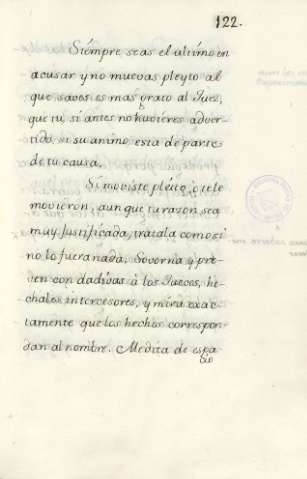 122.
Siempre seas el ultimo en
acusar y no muevas pleyto al
que saves es mas grato al Juez,
que tu, si antes no huvieres adver-
tido, si su animo esta de parte
de tu causa.
Si moviste pleito, o te le
movieron, aunque tu razon sea
muy Justificada, tratala como si
no lo fuera nada, Soverna y pre-
vien con dadivas à los Jueces, he-
chales intercesores, y mira exac-
tamente que los hechos correspon-
dan al nombre. Medita de espa-
cio